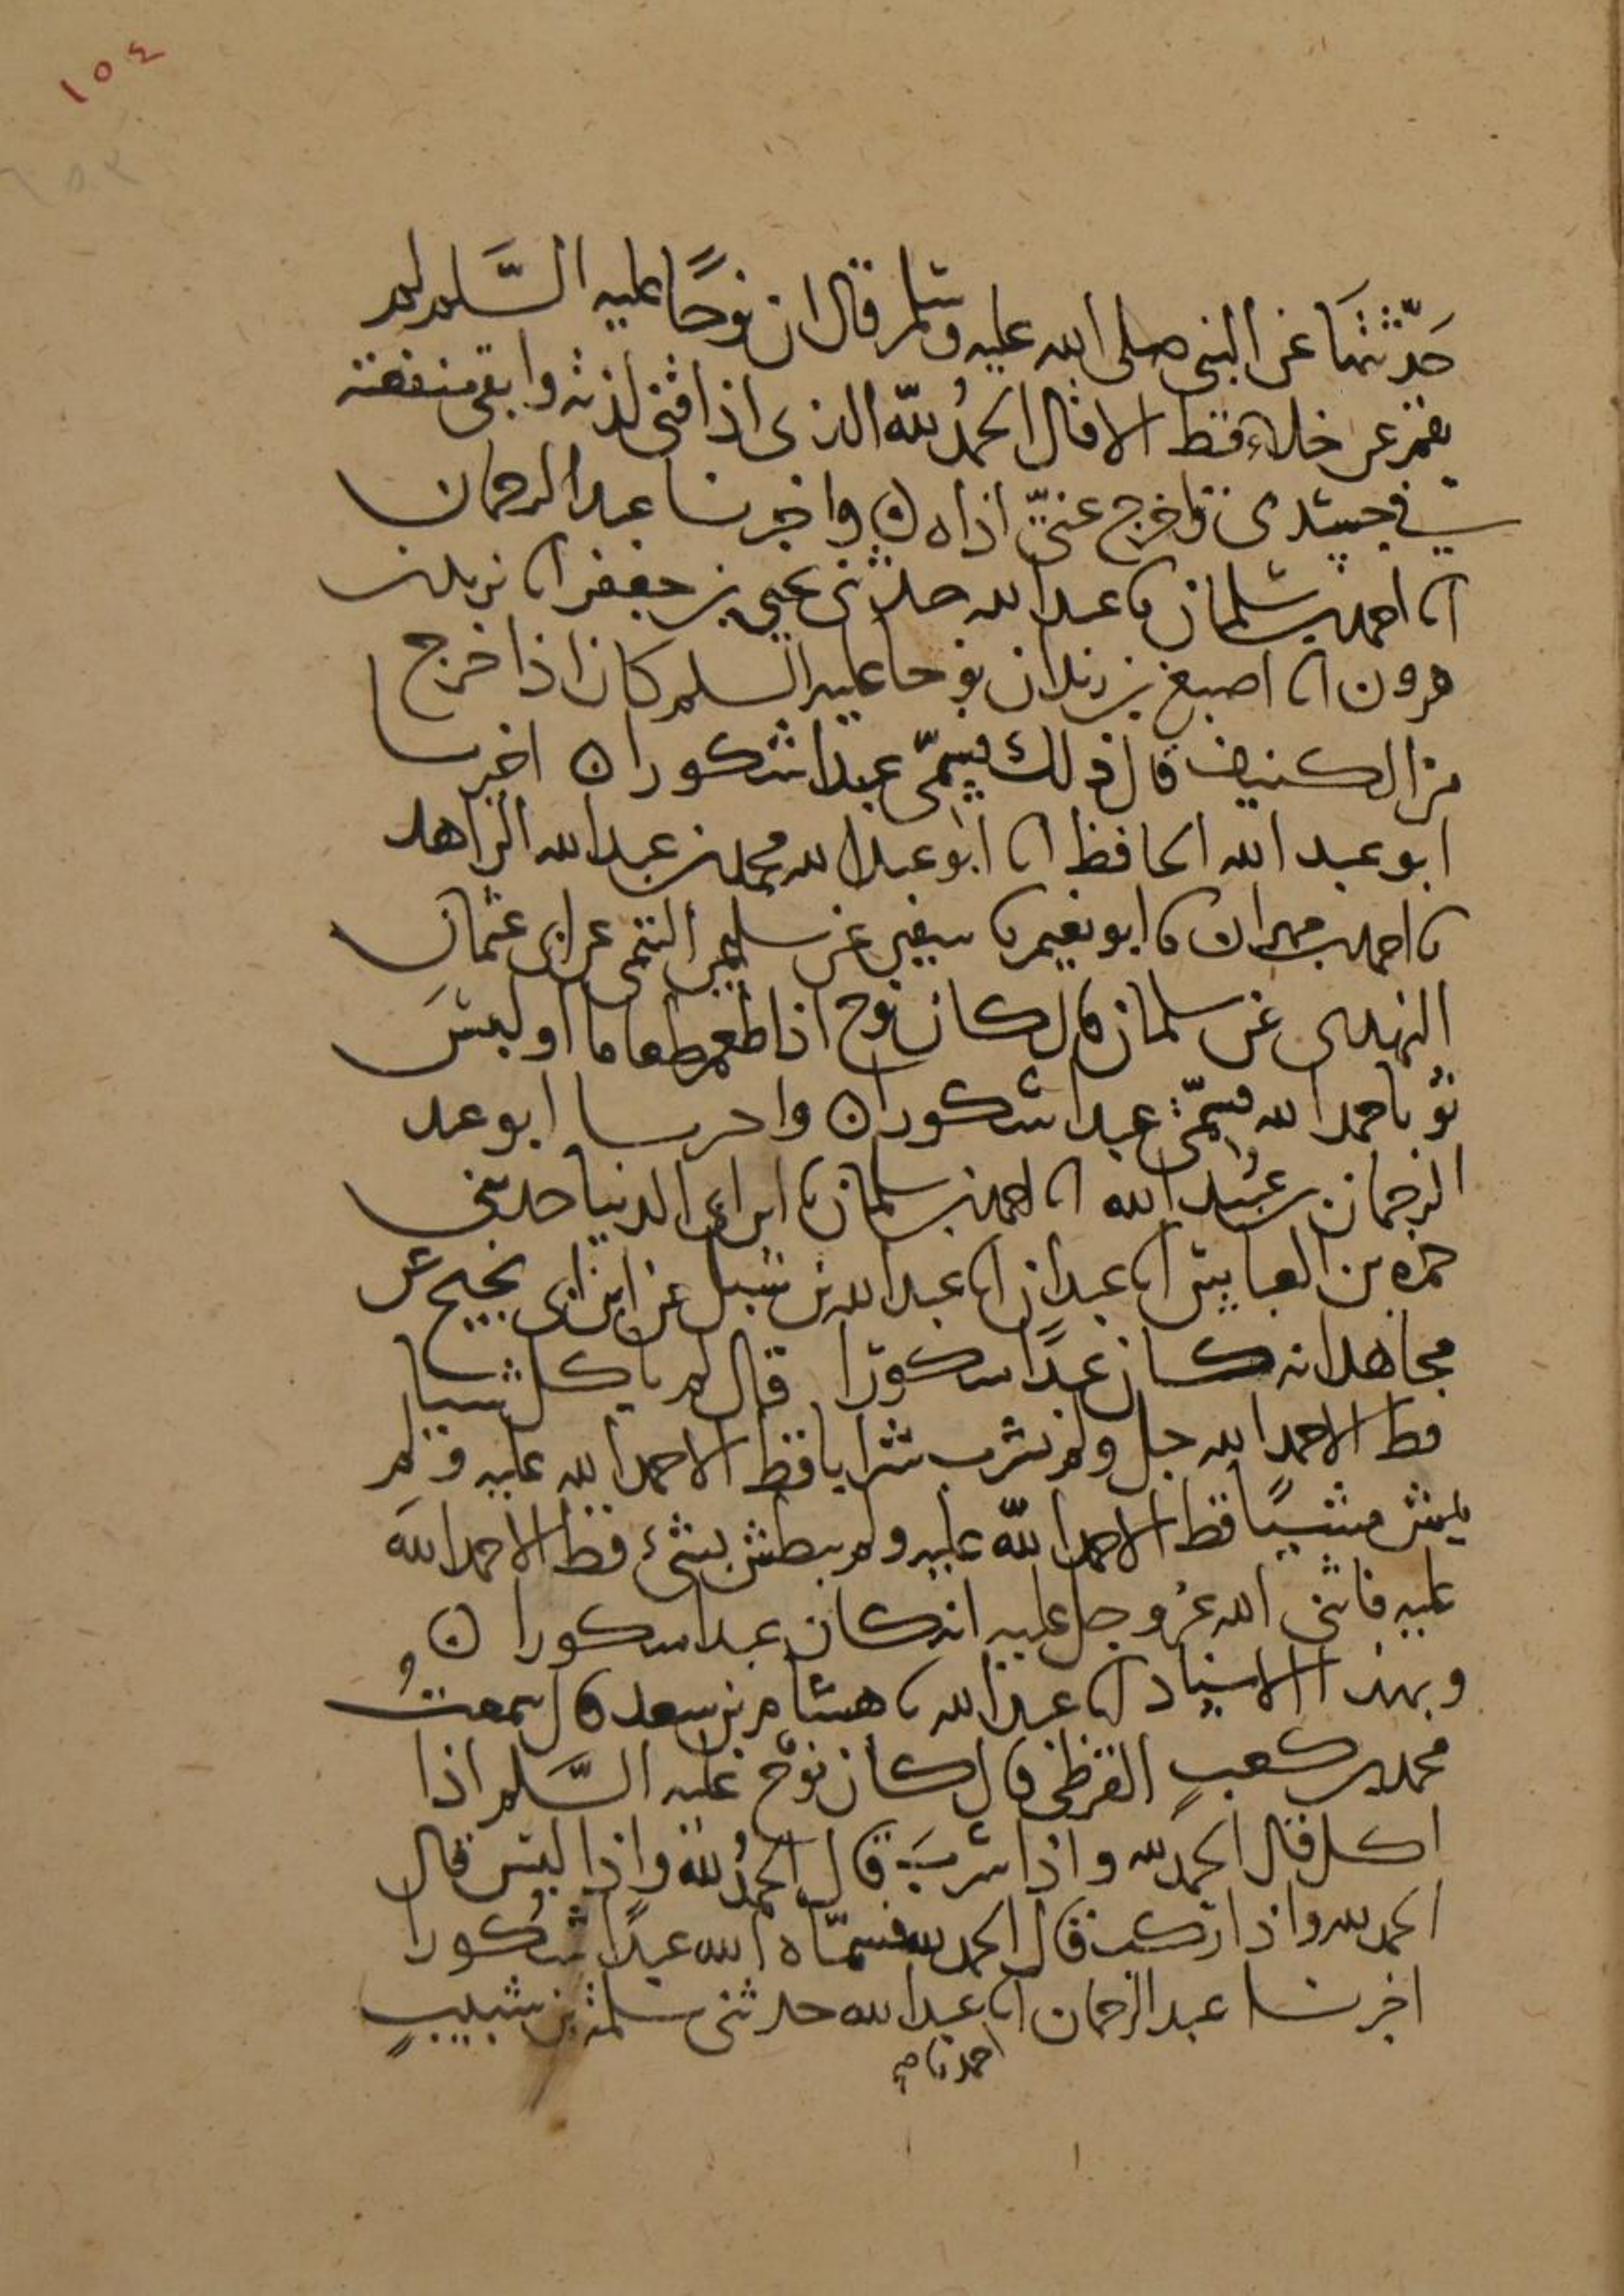 ١٥٤
حَدَّثتهَا عن النبي صلى الله عليه وسلم قال ان نوحًا عليه السَّلم لم
يقم عن خلاء قط الا قال الحمدُ للّه الذي اذاقني لذته وابقى منفعته
في جسدي واخرج عنّي اذاه ن واخبرنا عبد الرحمان
انا احمد بن سلمان نا عبد الله حدثني يحيى بن جعفر انا يزيد بن
هرون انا اصبغ بن زيد ان نوحا عليه السلم كان اذا خرج
من الكنيف قال ذلك فسمّي عبدا شكورا ن اخبرنا
ابو عبد الله الحافظ انا ابو عبد الله محمد بن عبد الله الزاهد
نا احمد بن مهران نا ابو نعيم نا سفين عن سليمن التيمي عن ابي عثمان
النهدي عن سلمان قال كان نوح اذا طعم طعاما او لبسَ
ثوبا حمد الله فسمّي عبدا شكورا ن واخبرنا ابو عبد
الرحمان بن عبُيد الله انا احمد بن سلمان نا ابن ابي الدنيا حدثني
حمزه بن العباس انا عبدان انا عبد الله بن شبل عن ابن ابي نجيح عن
مجاهد انه كان عبدًا شكورًا قال لم ياكل شيا
قط الا حمد الله جل ولم يشرب شرابا قط الا حمد الله عليه ولم
يمش مشيًا قط الا حمد اللّه عليه ولم يبطش بشيء قط الا حمد اللهَ
عليه فاثنى الله عز وجل عليه انه كان عبدا شكورا ن
وبهذا الاسناد انا عبد الله نا هشام بن سعد قال سمعتُ
محمد بن كعبٍ القرظي قال كان نوحٌ عليه السَّلم اذا
اكل قال الحمد لله واذا شربَ قال الحمدُ للّه واذا لبس قال
الحمد لله واذا ركب قال الحمد لله فسمّاه الله عبدًا شكورا
اخبرنا عبد الرحمان انا عبد الله حدثني سلمة بن شبيبٍ
احمد نا